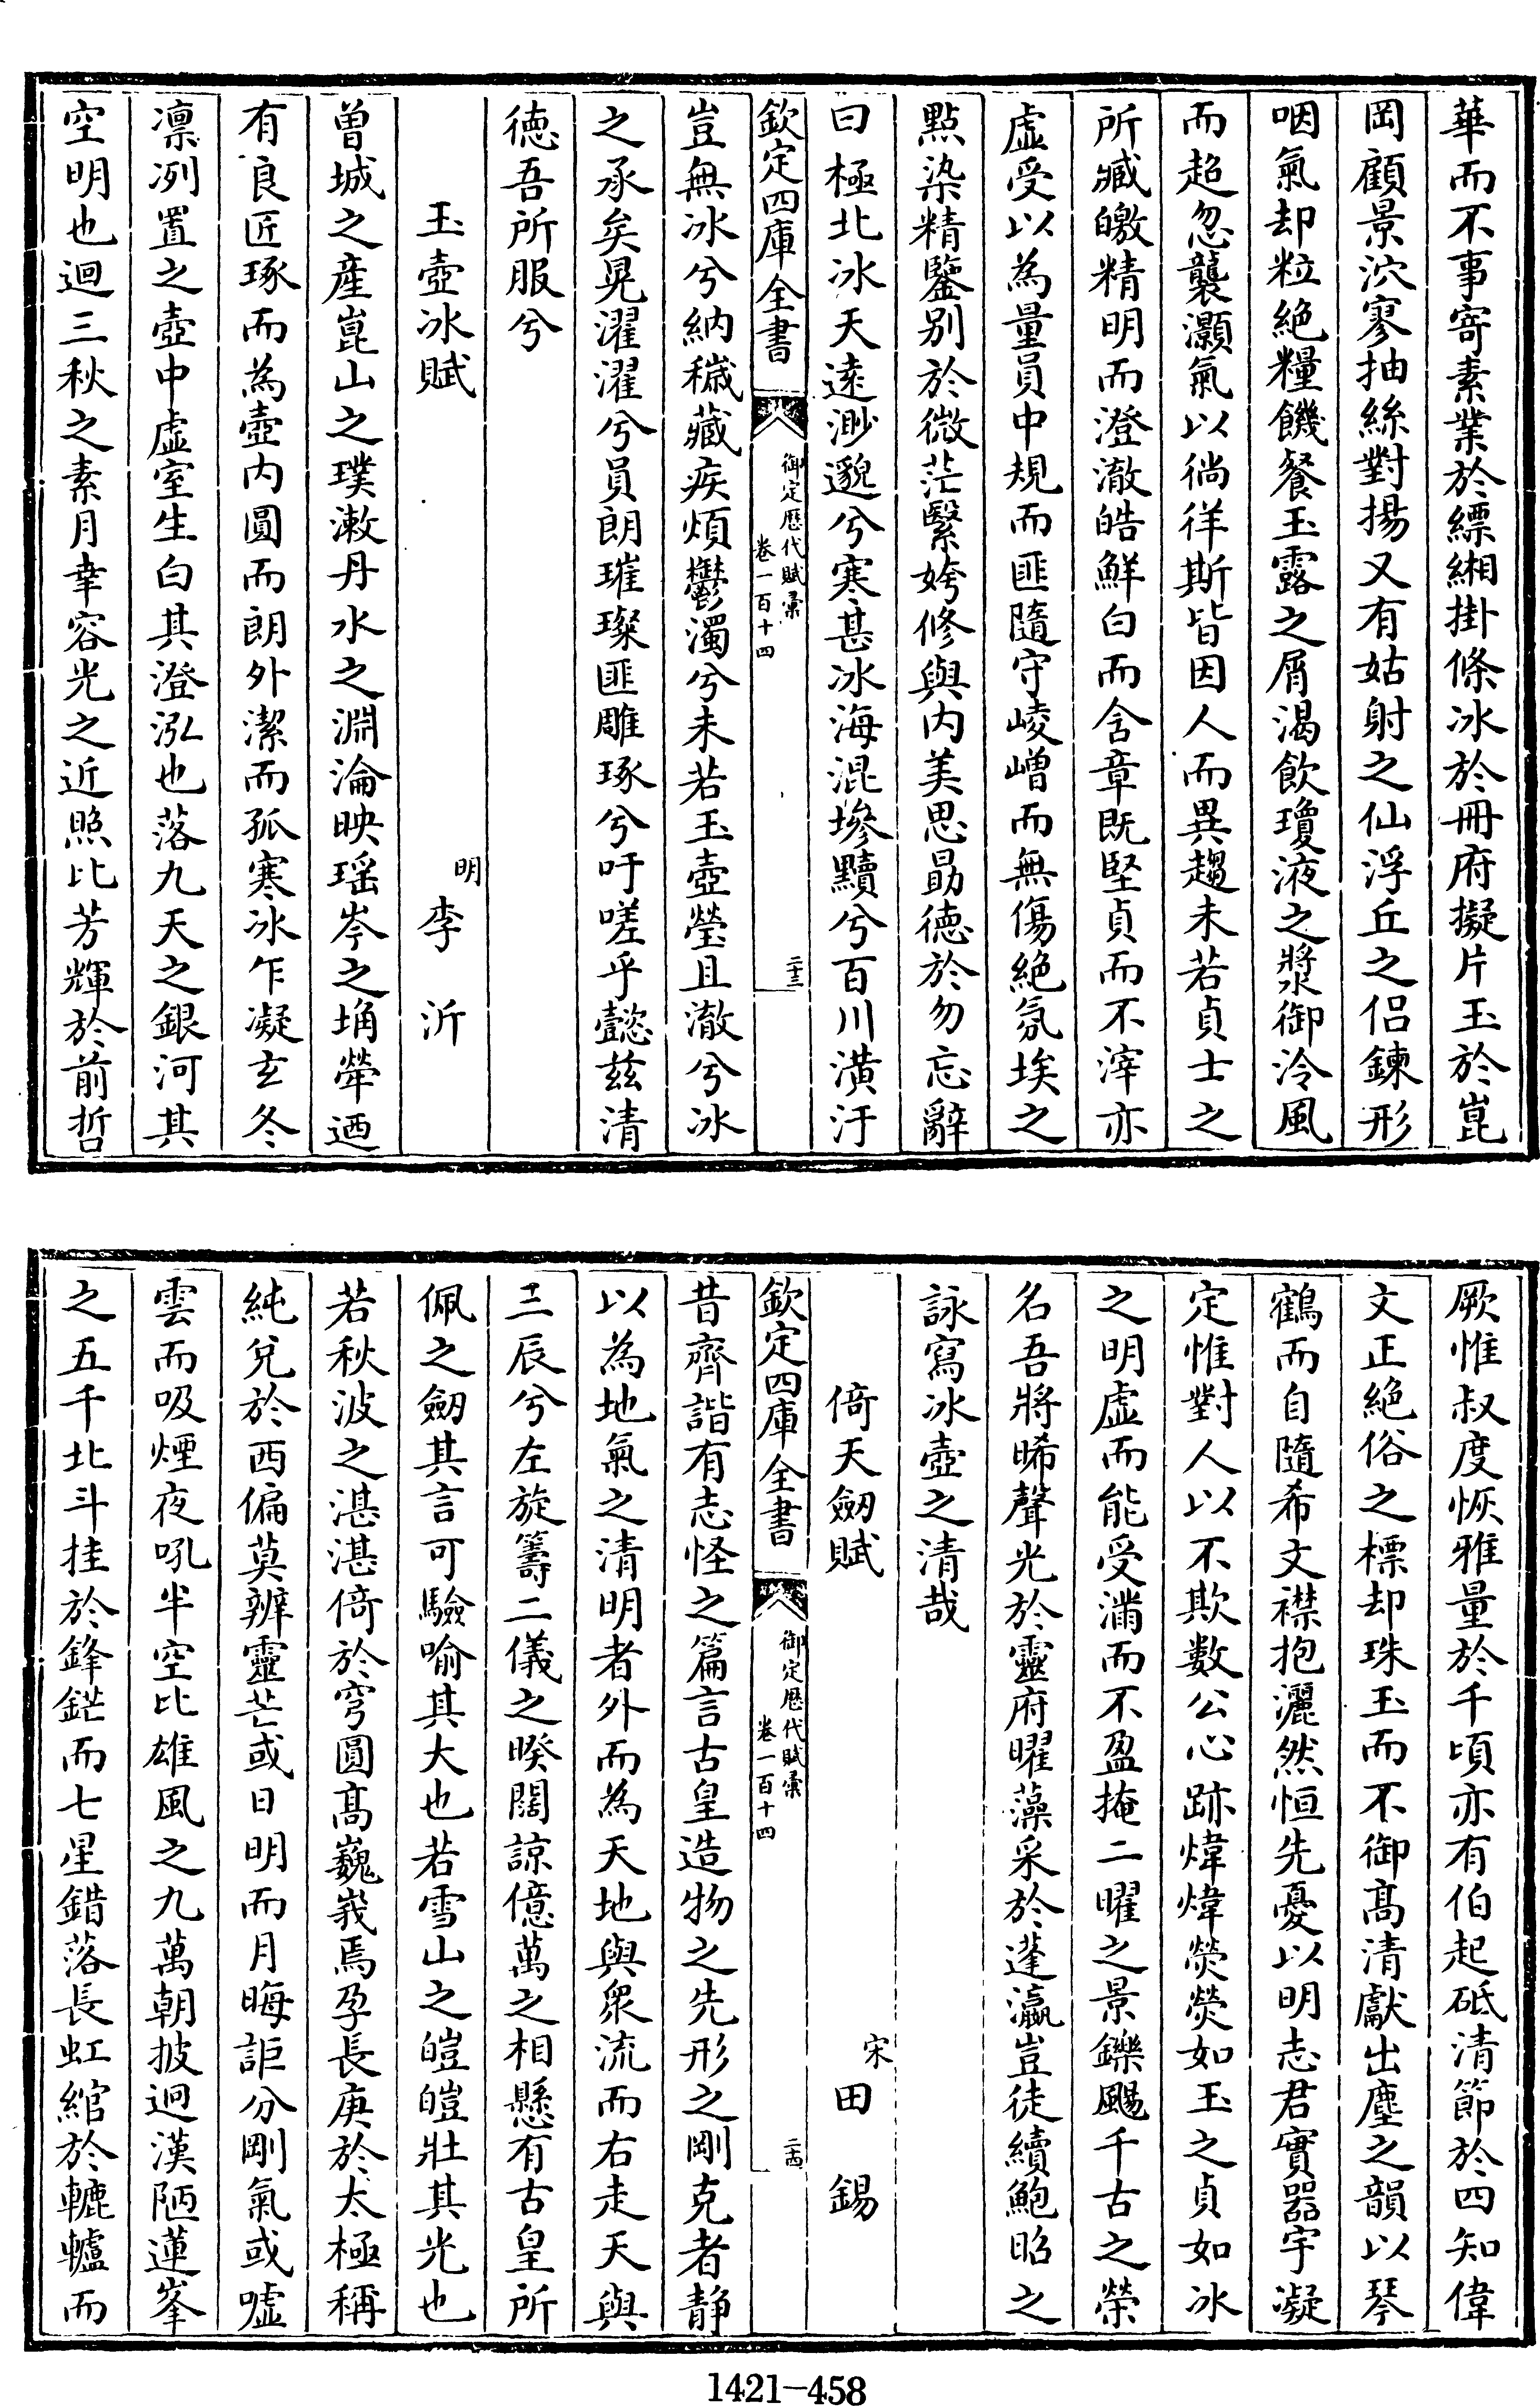 華而不事寄素業於縹緗掛條冰於冊府擬片玉於崑
岡顧景泬寥抽絲對揚又有姑射之仙浮丘之侶鍊形
咽氣却粒絶糧饑餐玉露之屑渴飲瓊液之漿御泠風
而超忽襲灝氣以徜徉斯皆因人而異趨未若貞士之
所臧皦精明而澄澈皓鮮白而含章既堅貞而不滓亦
虛受以為量員中規而匪隨守崚嶒而無傷絶氛埃之
點染精鑒别於微茫繄姱修與内美思勗徳於勿忘辭
曰極北冰天逺渺邈兮寒甚冰海混墋黷兮百川潢汙
欽定四庫全書
御定歴代賦彚
卷一百十四
二十三
豈無冰兮納穢藏疾煩鬱濁兮未若玉壺瑩且澈兮冰
之承矣晃濯濯兮員朗璀璨匪雕琢兮吁嗟乎懿兹清
徳吾所服兮
玉壺冰賦
明
李沂
曾城之産崑山之璞漱丹水之淵淪映瑶岑之埆犖迺
有良匠琢而為壺内圓而朗外潔而孤寒冰乍凝玄冬
凛冽置之壺中虚室生白其澄泓也落九天之銀河其
空明也迴三秋之素月幸容光之近照比芳輝於前哲
厥惟叔度恢雅量於千頃亦有伯起砥清節於四知偉
文正絶俗之標却珠玉而不御髙清獻出塵之韻以琴
鶴而自隨希文襟抱灑然恒先憂以明志君實器宇凝
定惟對人以不欺數公心跡煒煒熒熒如玉之貞如冰
之明虚而能受滿而不盈掩二曜之景鑠颺千古之榮
名吾將晞聲光於靈府曜藻采於蓬瀛豈徒續鮑昭之
詠寫冰壺之清哉
倚天劒賦
宋
田錫
欽定四庫全書
御定歴代賦彚
卷一百十四
二十四
昔齊諧有志怪之篇言古皇造物之先形之剛克者静
以為地氣之清明者外而為天地與衆流而右走天與
三辰兮左旋籌二儀之暌闊諒億萬之相懸有古皇所
佩之劒其言可驗喻其大也若雪山之皚皚壯其光也
若秋波之湛湛倚於穹圓髙巍峩焉孕長庚於太極稱
純兊於西偏莫辨靈芒或日明而月晦詎分剛氣或嘘
雲而吸煙夜吼半空比雄風之九萬朝披迥漢陋蓮峯
之五千北斗挂於鋒鋩而七星錯落長虹綰於轆轤而
1421-458